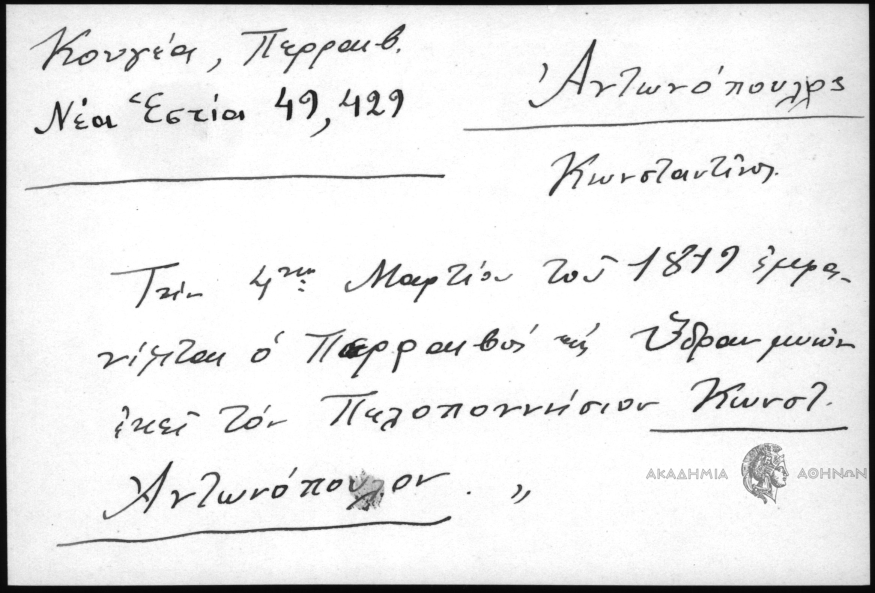 Κουγέα, Περραιβ.
Νέα Ἑστία 49, 429
Ἀντωνόπουλος
Κωνσταντῖνος.
Τὴν 4ην Μαρτίου τοῦ 1819 ἐμφα-
νίζεται ὁ Περραιβός εἰς Ὕδραν μυῶν
ἐκεῖ τόν Πελοποννήσιον Κωνστ.
Ἀντωνόπουλον. "
ΑΚΑΔΗΜΙΑ ΑΘΗΝΩΝ